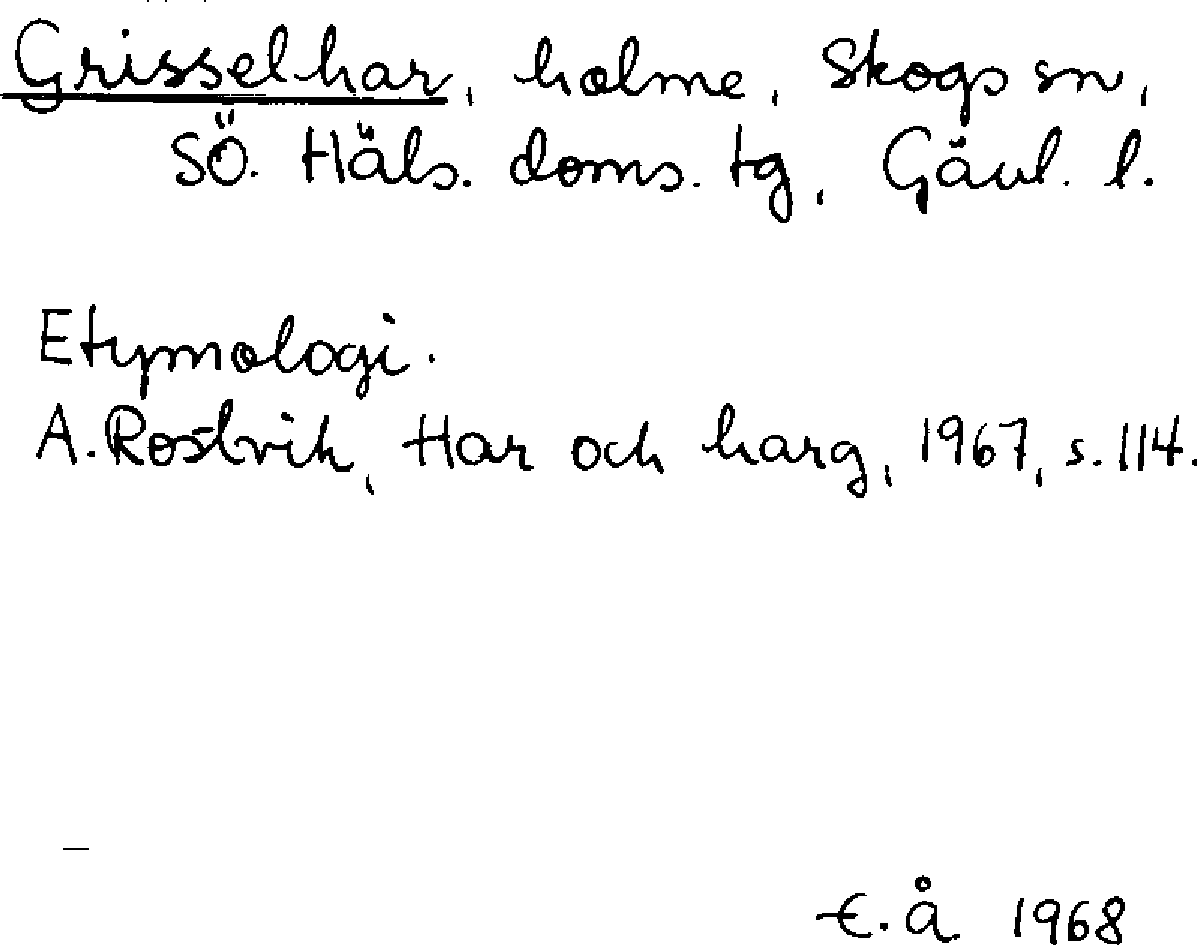 Grisselhar, holme, Skogs sn,
SÖ. Häls. doms. tg, Gävl. l.
Etymologi.
A. Rostvik, Har och harg, 1967, s. 114.
E. Å 1968